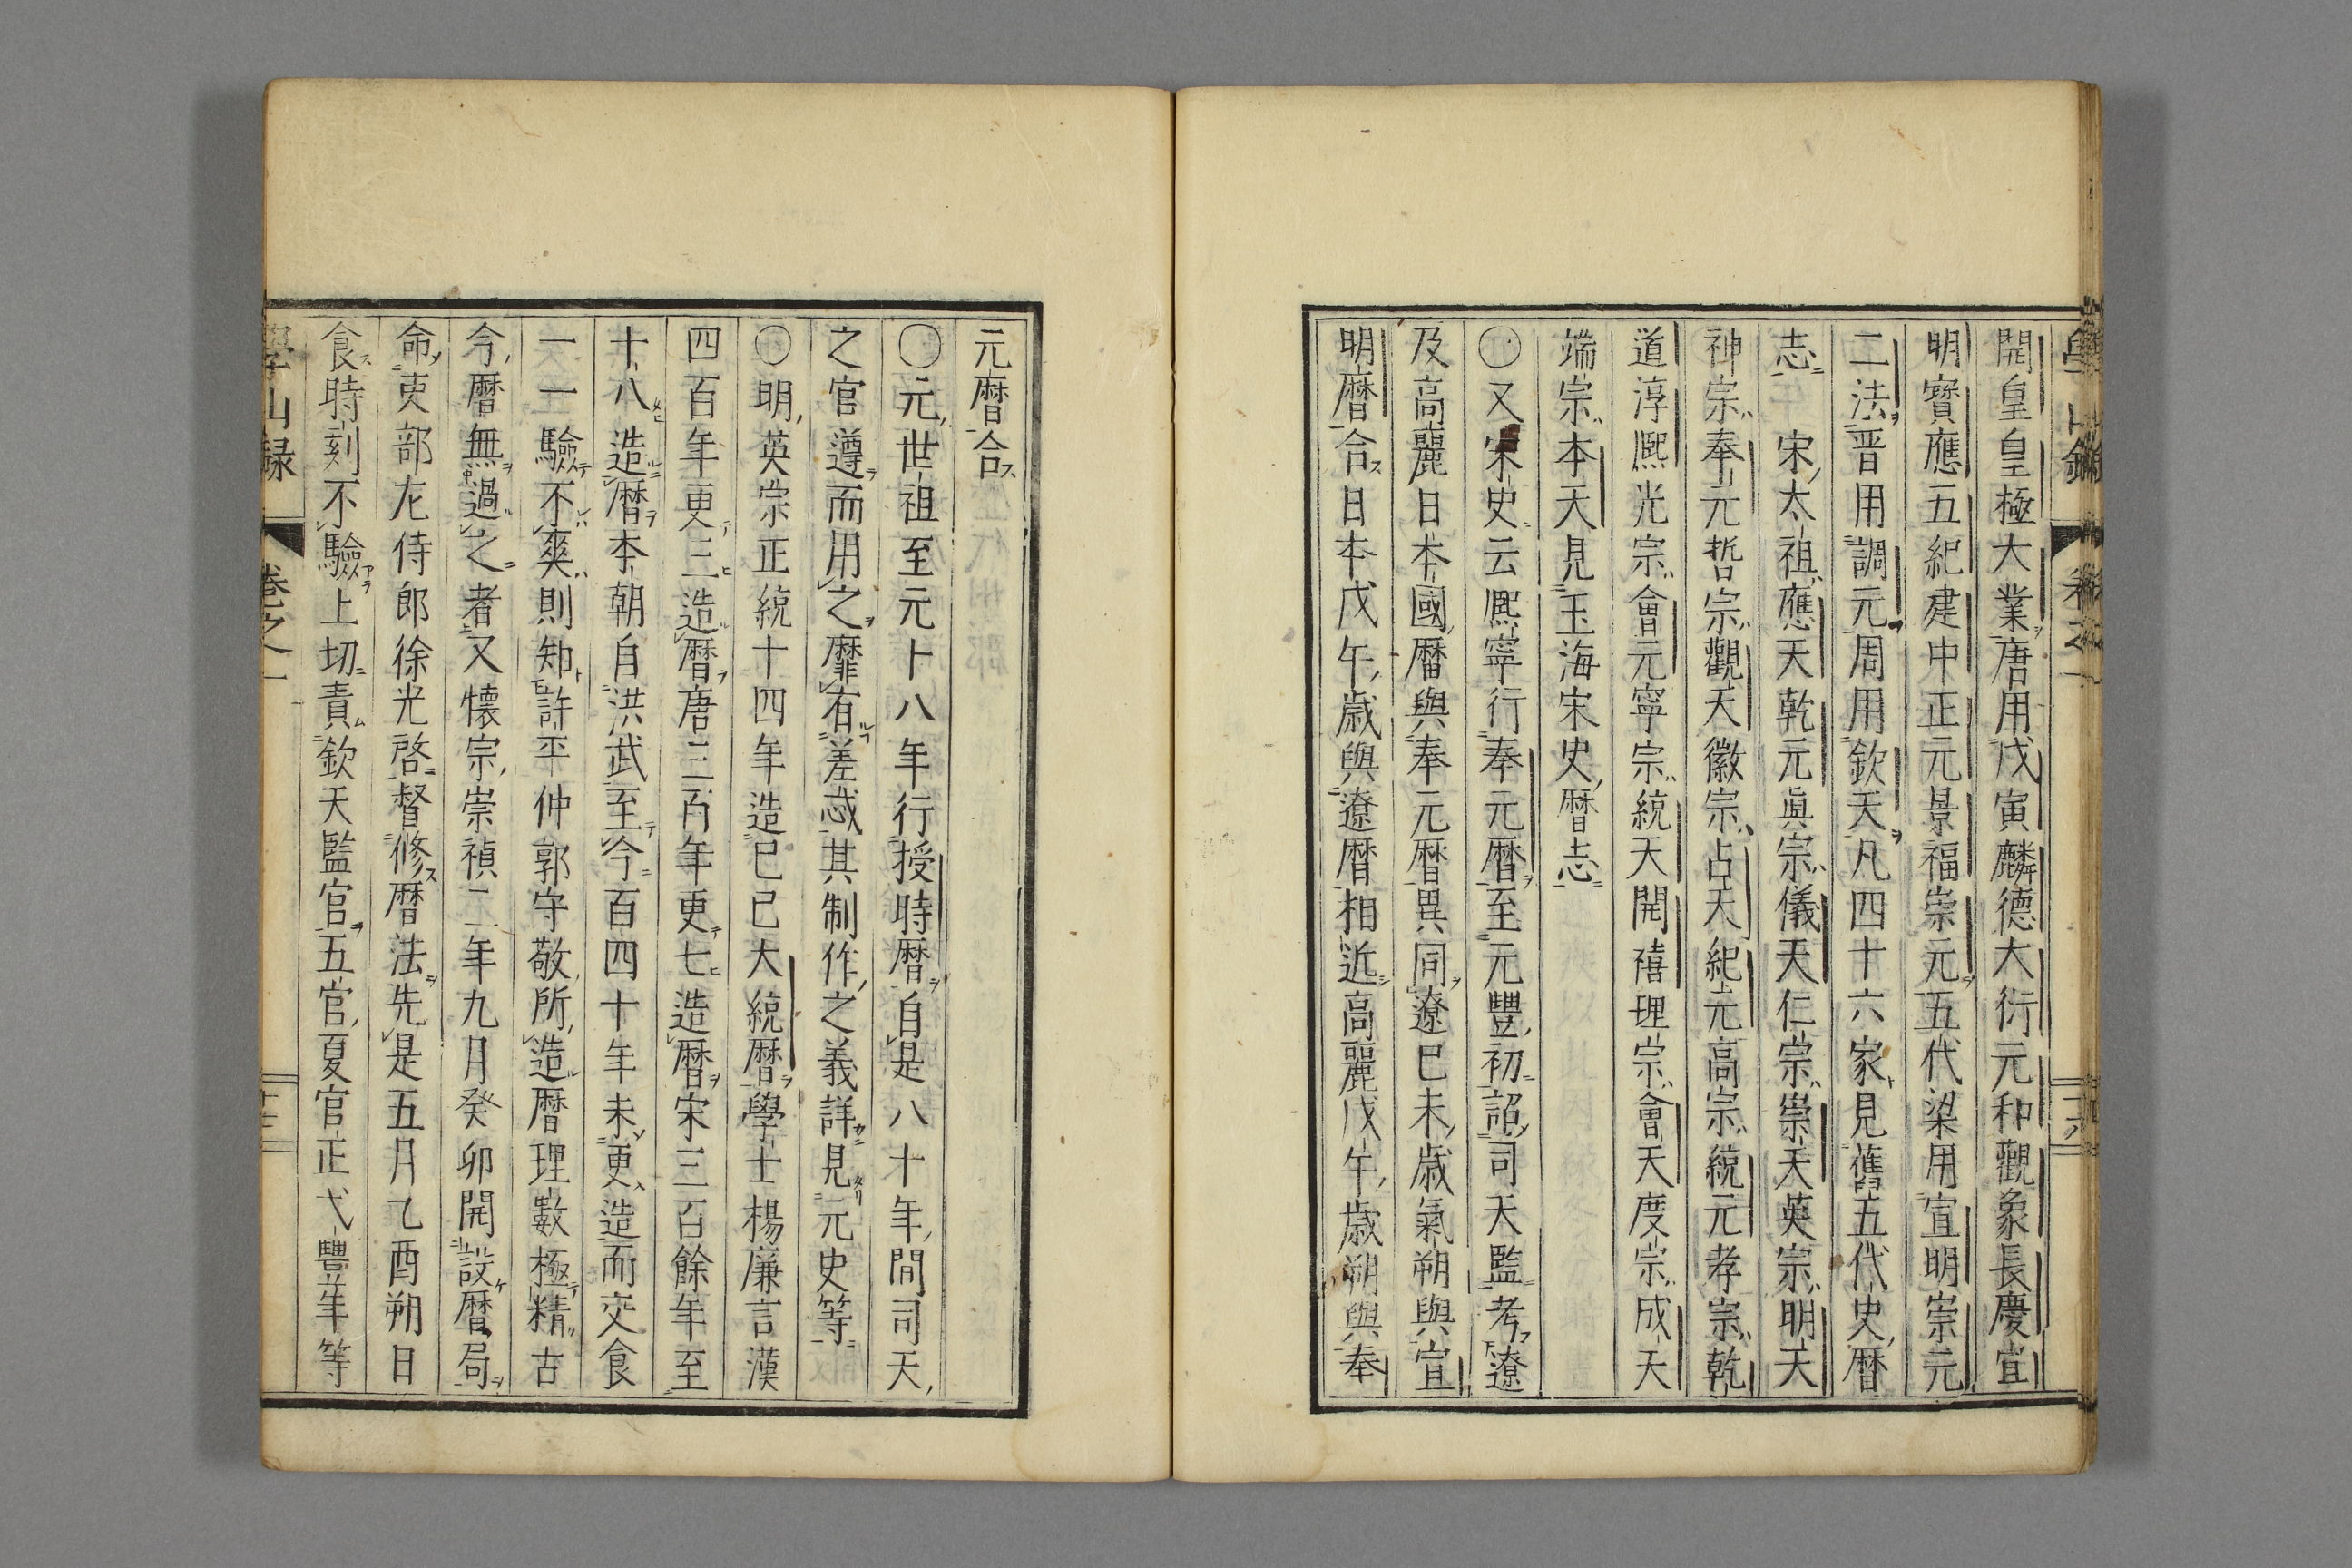 開皇皇極大業唐用戊寅麟德大衍元和觀象長慶宣
明寳應五紀建中正元景福崇元五代梁用宣明崇元
二法晋用調元周用欽天凡四十六家見舊五代史暦
志　宋太祖應天乾元眞宗儀天仁宗崇天英宗明天
神宗奉元哲宗觀天徽宗占天紀元高宗統元孝宗乾
道淳熙光宗會元寧宗統天開禧理宗會天度宗成天
端宗本天見玉海宋史暦志
〇又宋史云熙寧行奉元暦至元豐初詔司天監考遼
及高麗日本國暦與奉元暦異同遼巳未歲氣朔與宣
明暦合日本戊午歲與遼暦相近高麗戊午歲朔與奉
元暦合
〇元世祖至元十八年行授時暦自是八十年間司天
之官遵而用之靡有差忒其制作之義詳見元史等
〇明英宗正統十四年造已已大統暦學士楊廉言漢
四百年更三造暦唐三百年更七造暦宋三百餘年至
十八造暦本朝自洪武至今百四十年未更造而交食
一一驗不爽則知許平仲郭守敬所造暦理數極精古
今暦無過之者又懷宗崇禎二年九月癸卯開設暦局
命吏部左侍郎徐光啓督修暦法先是五月乙酉朔日
食時刻不驗上切責欽天監官五官夏官正弋豐年等
學山録　卷之一